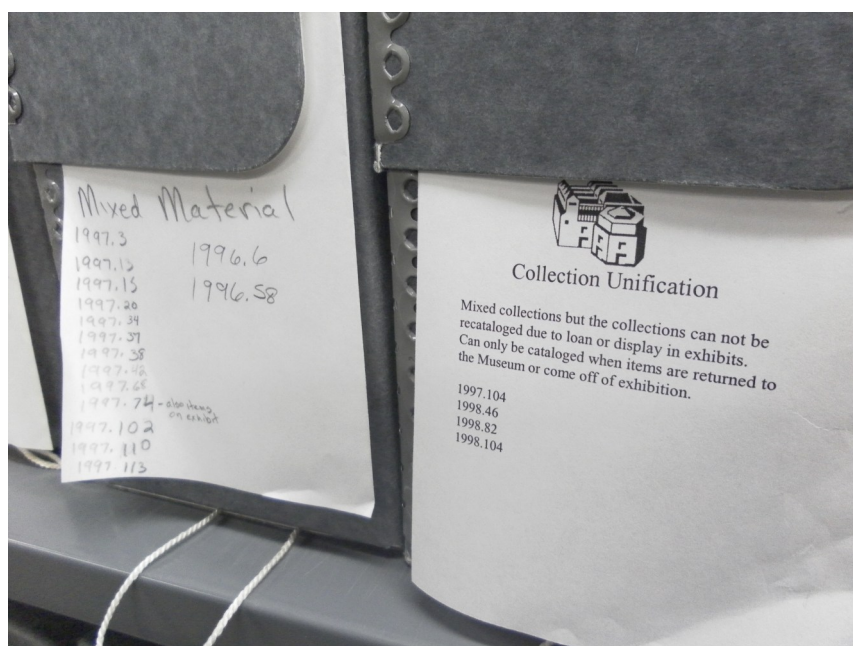 Mixed Material
1997.3
1997.13
1997.15
1997.20
1997.34
1997.37
1997.38
1997.42
1997.68
1997.74 - also items
on exhibit
1997.102
1997.110
1997.113
1996.6
1996.58
Collection Unification
Mixed collections but the collections can not be
recataloged due to loan or display in exhibits.
Can only be cataloged when items are returned to
the Museum or come off of exhibition.
1997.104
1998.46
1998.82
1998.104